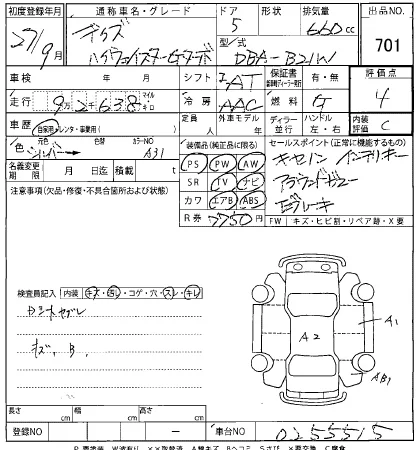 初度登録年月 通称車名・グレード ド ア 形状 排気量 出品NO.
27/9月 デイズ 5 660cc
ハイウェイスターGターボ 型 式 701
DBA-B21W
車検 年 月 シフト FAT 保証書 有・無 評価点
走行 9万2千638 マイル キロ 冷房 AAC 燃料 G 4
車歴 自家用・レンタ・事業用( ) 定員 人 外車モデル 年 ディラー 並行 ハンドル 左・右 内装評価 C
色 元色 シルバー 色替 カラーNO A31 装備品(純正品に限る) セールスポイント(正常に機能するもの)
名義変更期限 月 日迄 積載 t PS PW AW キセノン インテリキー
注意事項(欠品・修復・不具合箇所および状態) SR TV ナビ アラウンドビュー
カワ エアB ABS Eブレーキ
R券 7750円 FW キズ・ヒビ割・リペア跡・X要
検査員記入 内装 キズ・汚レ・コゲ・穴・スレ・キレ
ウンテンセキズレ
キズ、B、
A2 A1
AB1
長さ cm 幅 cm 高さ cm
登録NO ー 車台NO 0255515